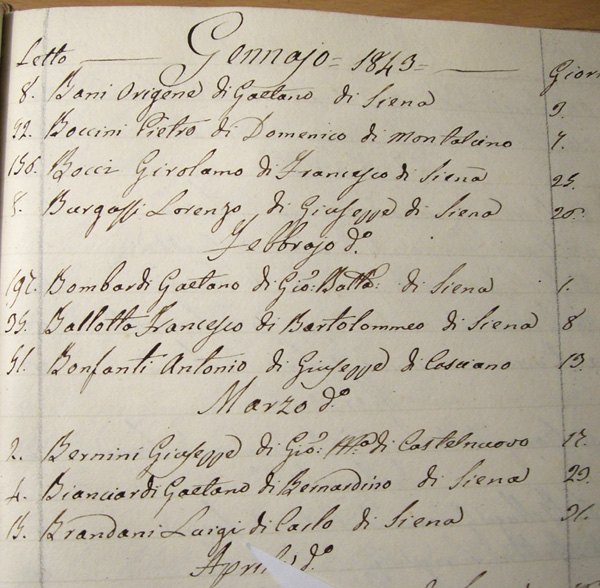 Letto Gennajo = 1843 = Giorn
8. Bani Origene di Gaetano di Siena 9.
52. Boccini Pietro di Domenico di Montalcino 7.
156. Bocci Girolamo di Francesco di Siena 25.
8. Burgassi Lorenzo di Giuseppe di Siena 20.
Febbrajo do.
192. Bombardi Gaetano di Gio: Batta: di Siena 1.
35. Ballotta Francesco di Bartolommeo di Siena 8
51. Bonfanti Antonio di Giuseppe di Casciano 13.
Marzo do.
2. Bernini Giuseppe di Gio: di Castelnuovo 12.
4. Bianciardi Gaetano di Bernardino di Siena 29.
13. Brandani Luigi di Carlo di Siena 31.
Aprile do.